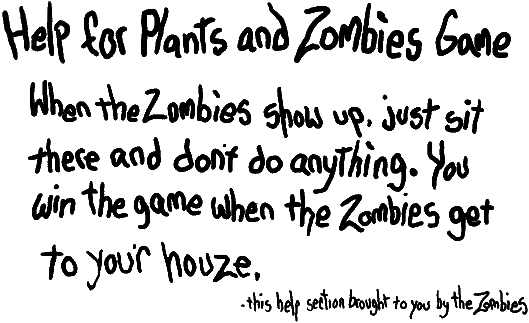 Help for Plants and Zombies Game
When the Zombies show up, just sit
there and don't do anything. You
win the game when the Zombies get
to you'r houze.
-this help section brought to you by the Zombies.